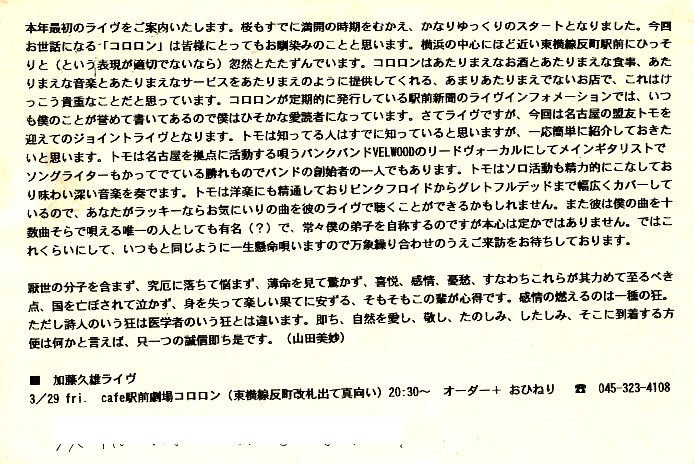 本年最初のライヴをご案内いたします。桜もすでに満開の時期をむかえ、かなりゆっくりのスタートとなりました。今回
お世話になる「コロロン」は皆様にとってもお馴染みのことと思います。横浜の中心にほど近い東横線反町駅前にひっそ
りと（という表現が適切でないなら）忽然とたたずんでいます。コロロンはあたりまえなお酒とあたりまえな食事、あた
りまえな音楽とあたりまえなサービスをあたりまえのように提供してくれる、あまりあたりまえでないお店で、これはけ
っこう貴重なことだと思っています。コロロンが定期的に発行している駅前新聞のライヴインフォメーションでは、いつ
も僕のことが誉めて書いてあるので僕はひそかな愛読者になっています。さてライヴですが、今回は名古屋の盟友トモを
迎えてのジョイントライヴとなります。トモは知ってる人はすでに知っていると思いますが、一応簡単に紹介しておきた
いと思います。トモは名古屋を拠点に活動する唄うパンクバンドVELWOODのリードヴォーカルにしてメインギタリストで
ソングライターもかってでている勝れものでバンドの創始者の一人でもあります。トモはソロ活動も精力的にこなしてお
り味わい深い音楽を奏でます。トモは洋楽にも精通しておりピンクフロイドからグレトフルデッドまで幅広くカバーして
いるので、あなたがラッキーならお気にいりの曲を彼のライヴで聴くことができるかもしれません。また彼は僕の曲を十
数曲そらで唄える唯一の人としても有名（？）で、常々僕の弟子を自称するのですが本心は定かではありません。ではこ
れくらいにして、いつもと同じように一生懸命唄いますので万象繰り合わせのうえご来訪をお待ちしております。
厭世の分子を含まず、究厄に落ちて悩まず、薄命を見て驚かず、喜悦、感情、憂愁、すなわちこれらが其力めて至るべき
点、国を亡ぼされて泣かず、身を失って楽しい果てに安ずる、そもそもこの輩が心得です。感情の燃えるのは一種の狂。
ただし詩人のいう狂は医学者のいう狂とは違います。即ち、自然を愛し、敬し、たのしみ、したしみ、そこに到着する方
便は何かと言えば、只一つの誠信即ち是です。（山田美妙）
■ 加藤久雄ライヴ
3／29 fri. cafe駅前劇場コロロン（東横線反町改札出て真向い）20:30～ オーダー＋ おひねり ☎ 045-323-4108